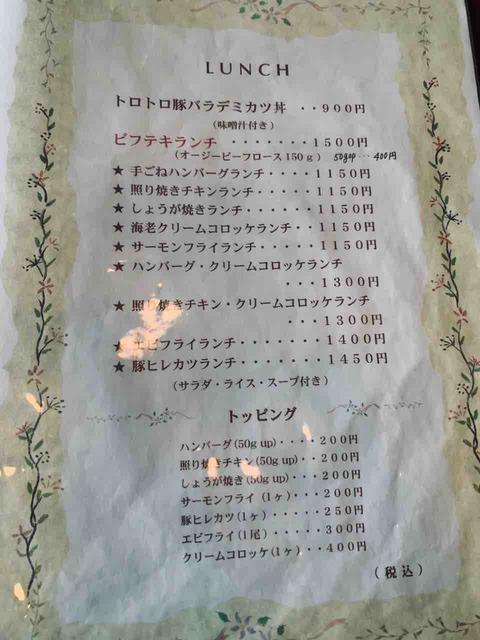 LUNCH
トロトロ豚バラデミカツ丼 ・・900円
(味噌汁付き)
ビフテキランチ ・・・・・・・1500円
(オージービーフロース150g) 50gup…400円
★ 手ごねハンバーグランチ・・・・1150円
★ 照り焼きチキンランチ・・・・・1150円
★ しょうが焼きランチ・・・・・・1150円
★ 海老クリームコロッケランチ・・1150円
★ サーモンフライランチ・・・・・1150円
★ ハンバーグ・クリームコロッケランチ
・・・1300円
★ 照り焼きチキン・クリームコロッケランチ
・・・1300円
★ エビフライランチ・・・・・・・1400円
★ 豚ヒレカツランチ・・・・・・・1450円
(サラダ・ライス・スープ付き)
トッピング
ハンバーグ(50g up)・・・・200円
照り焼きチキン(50g up)・・200円
しょうが焼き(50g up)・・・200円
サーモンフライ(1ヶ)・・・200円
豚ヒレカツ(1ヶ)・・・・・250円
エビフライ(1尾)・・・・・300円
クリームコロッケ(1ヶ)・・400円
(税込)